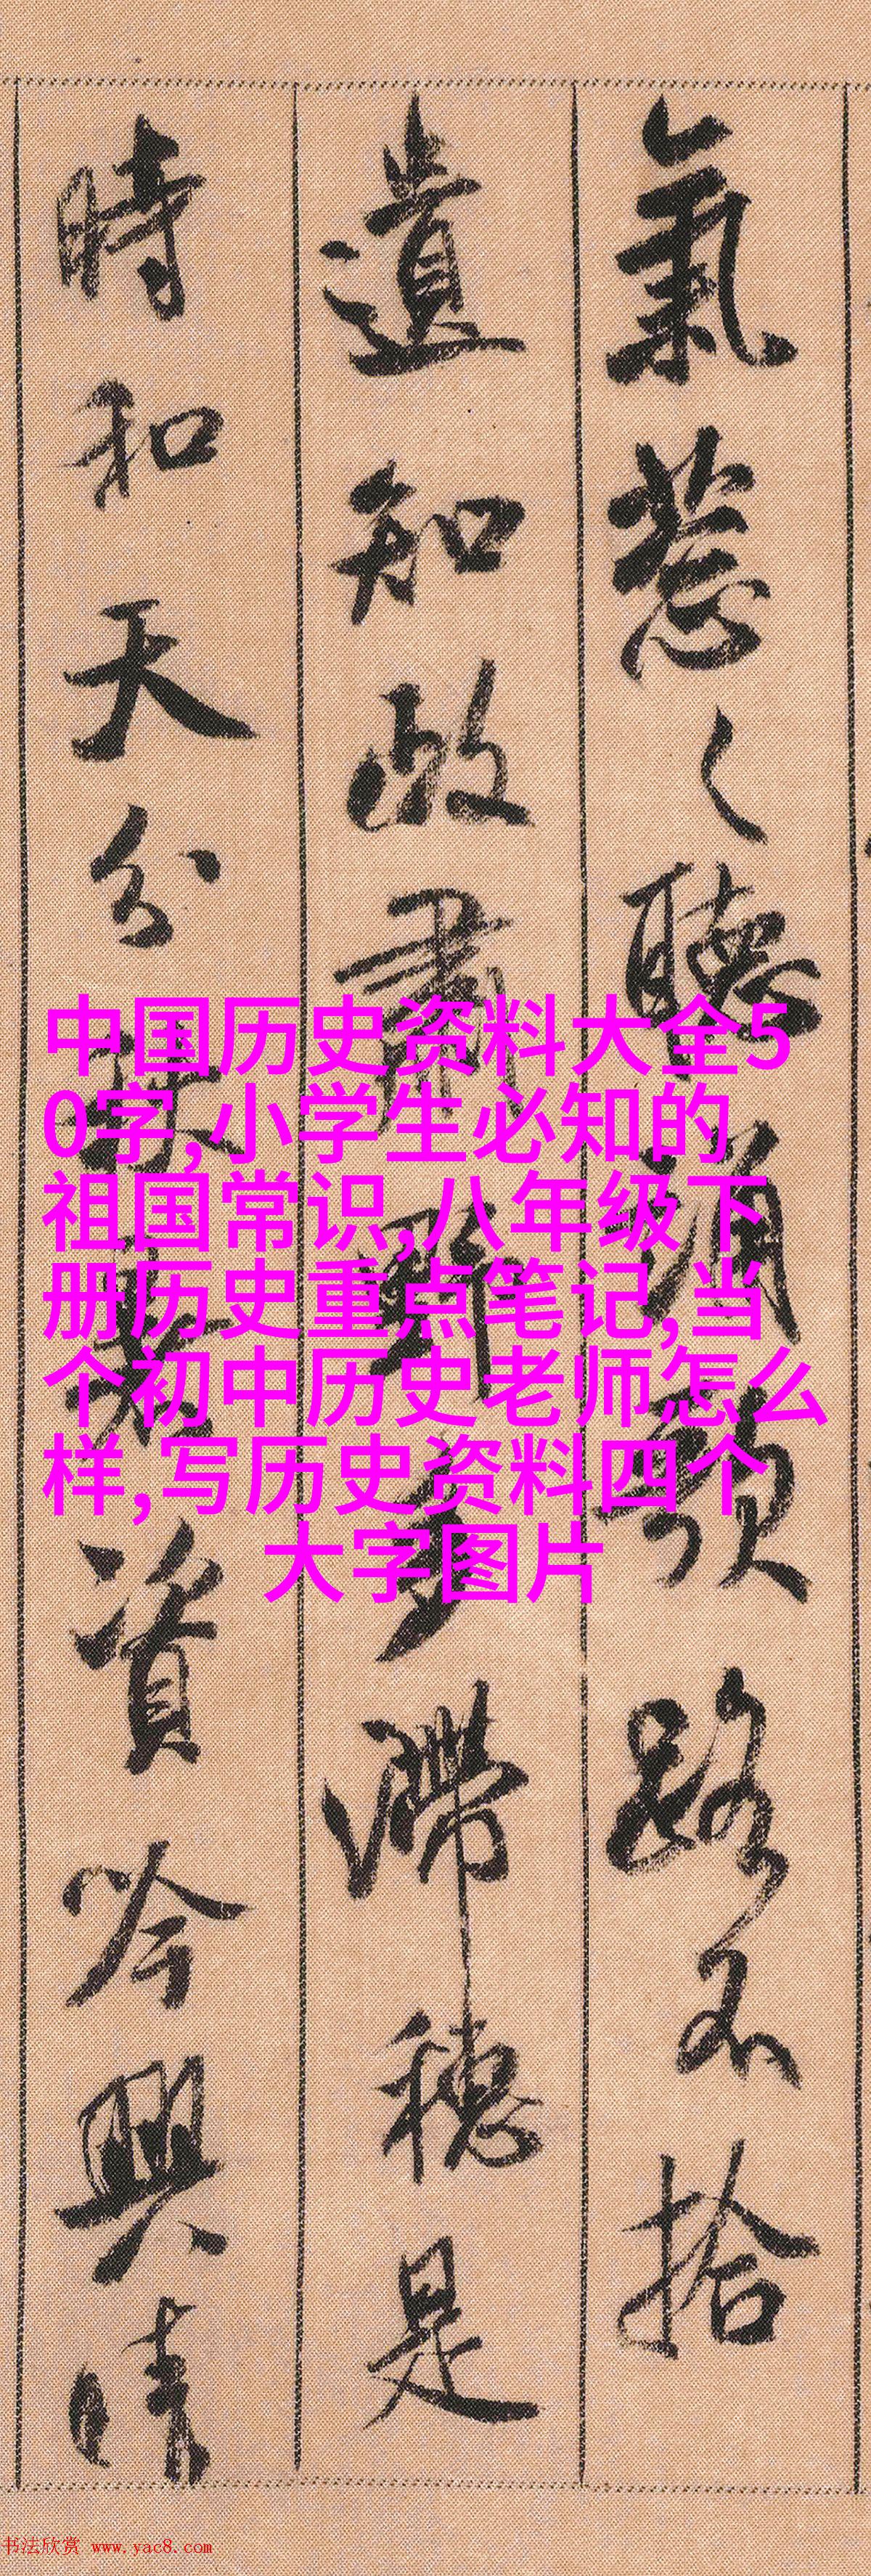 氣葱〻聽誦歌路不拾
遺知政肅野多滯穗是
時和天分秋暑資吟興晴
中国历史资料大全5
0字,小学生必知的
祖国常识,八年级下
册历史重点笔记,当
个初中历史老师怎么
样,写历史资料四个
大字图片
书法欣赏 www.yac8.com